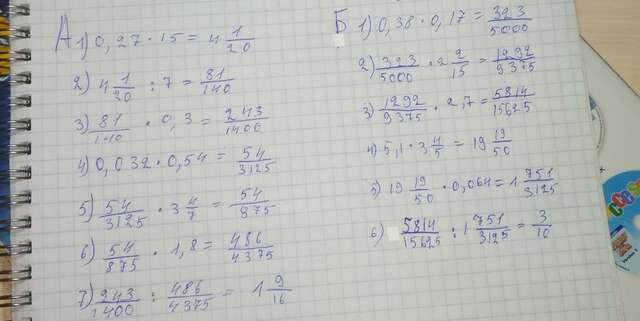 А 1) 0,27 · 15 = 4 1/20
2) 4 1/20 : 7 = 81/140
3) 81/140 · 0,3 = 243/1400
4) 0,032 · 0,54 = 54/3125
5) 54/3125 · 3 4/7 = 54/875
6) 54/875 · 1,8 = 486/4375
7) 243/1400 : 486/4375 = 1 9/16
Б 1) 0,38 · 0,17 = 323/5000
2) 323/5000 · 2 2/15 = 1292/9375
3) 1292/9375 · 2,7 = 5814/15625
4) 5,1 · 3 4/5 = 19 19/50
5) 19 19/50 · 0,064 = 1 751/3125
6) 5814/15625 : 1 751/3125 = 3/10